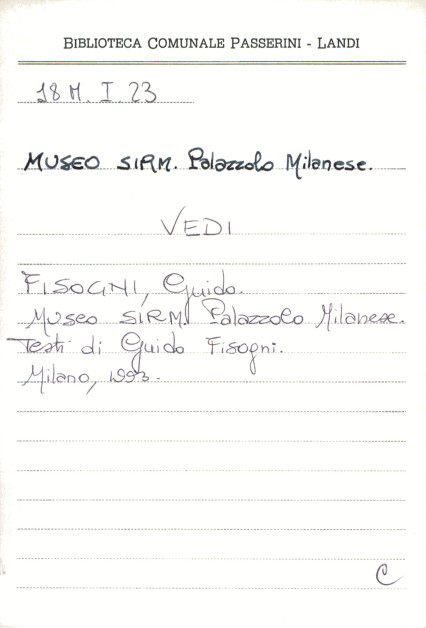 BIBLIOTECA COMUNALE PASSERINI - LANDI
18 M. I. 23
MUSEO SIRM. Palazzolo Milanese.
VEDI
FISOGNI, Guido.
Museo SIRM. Palazzolo Milanese.
Testi di Guido Fisogni.
Milano, 1993.
C